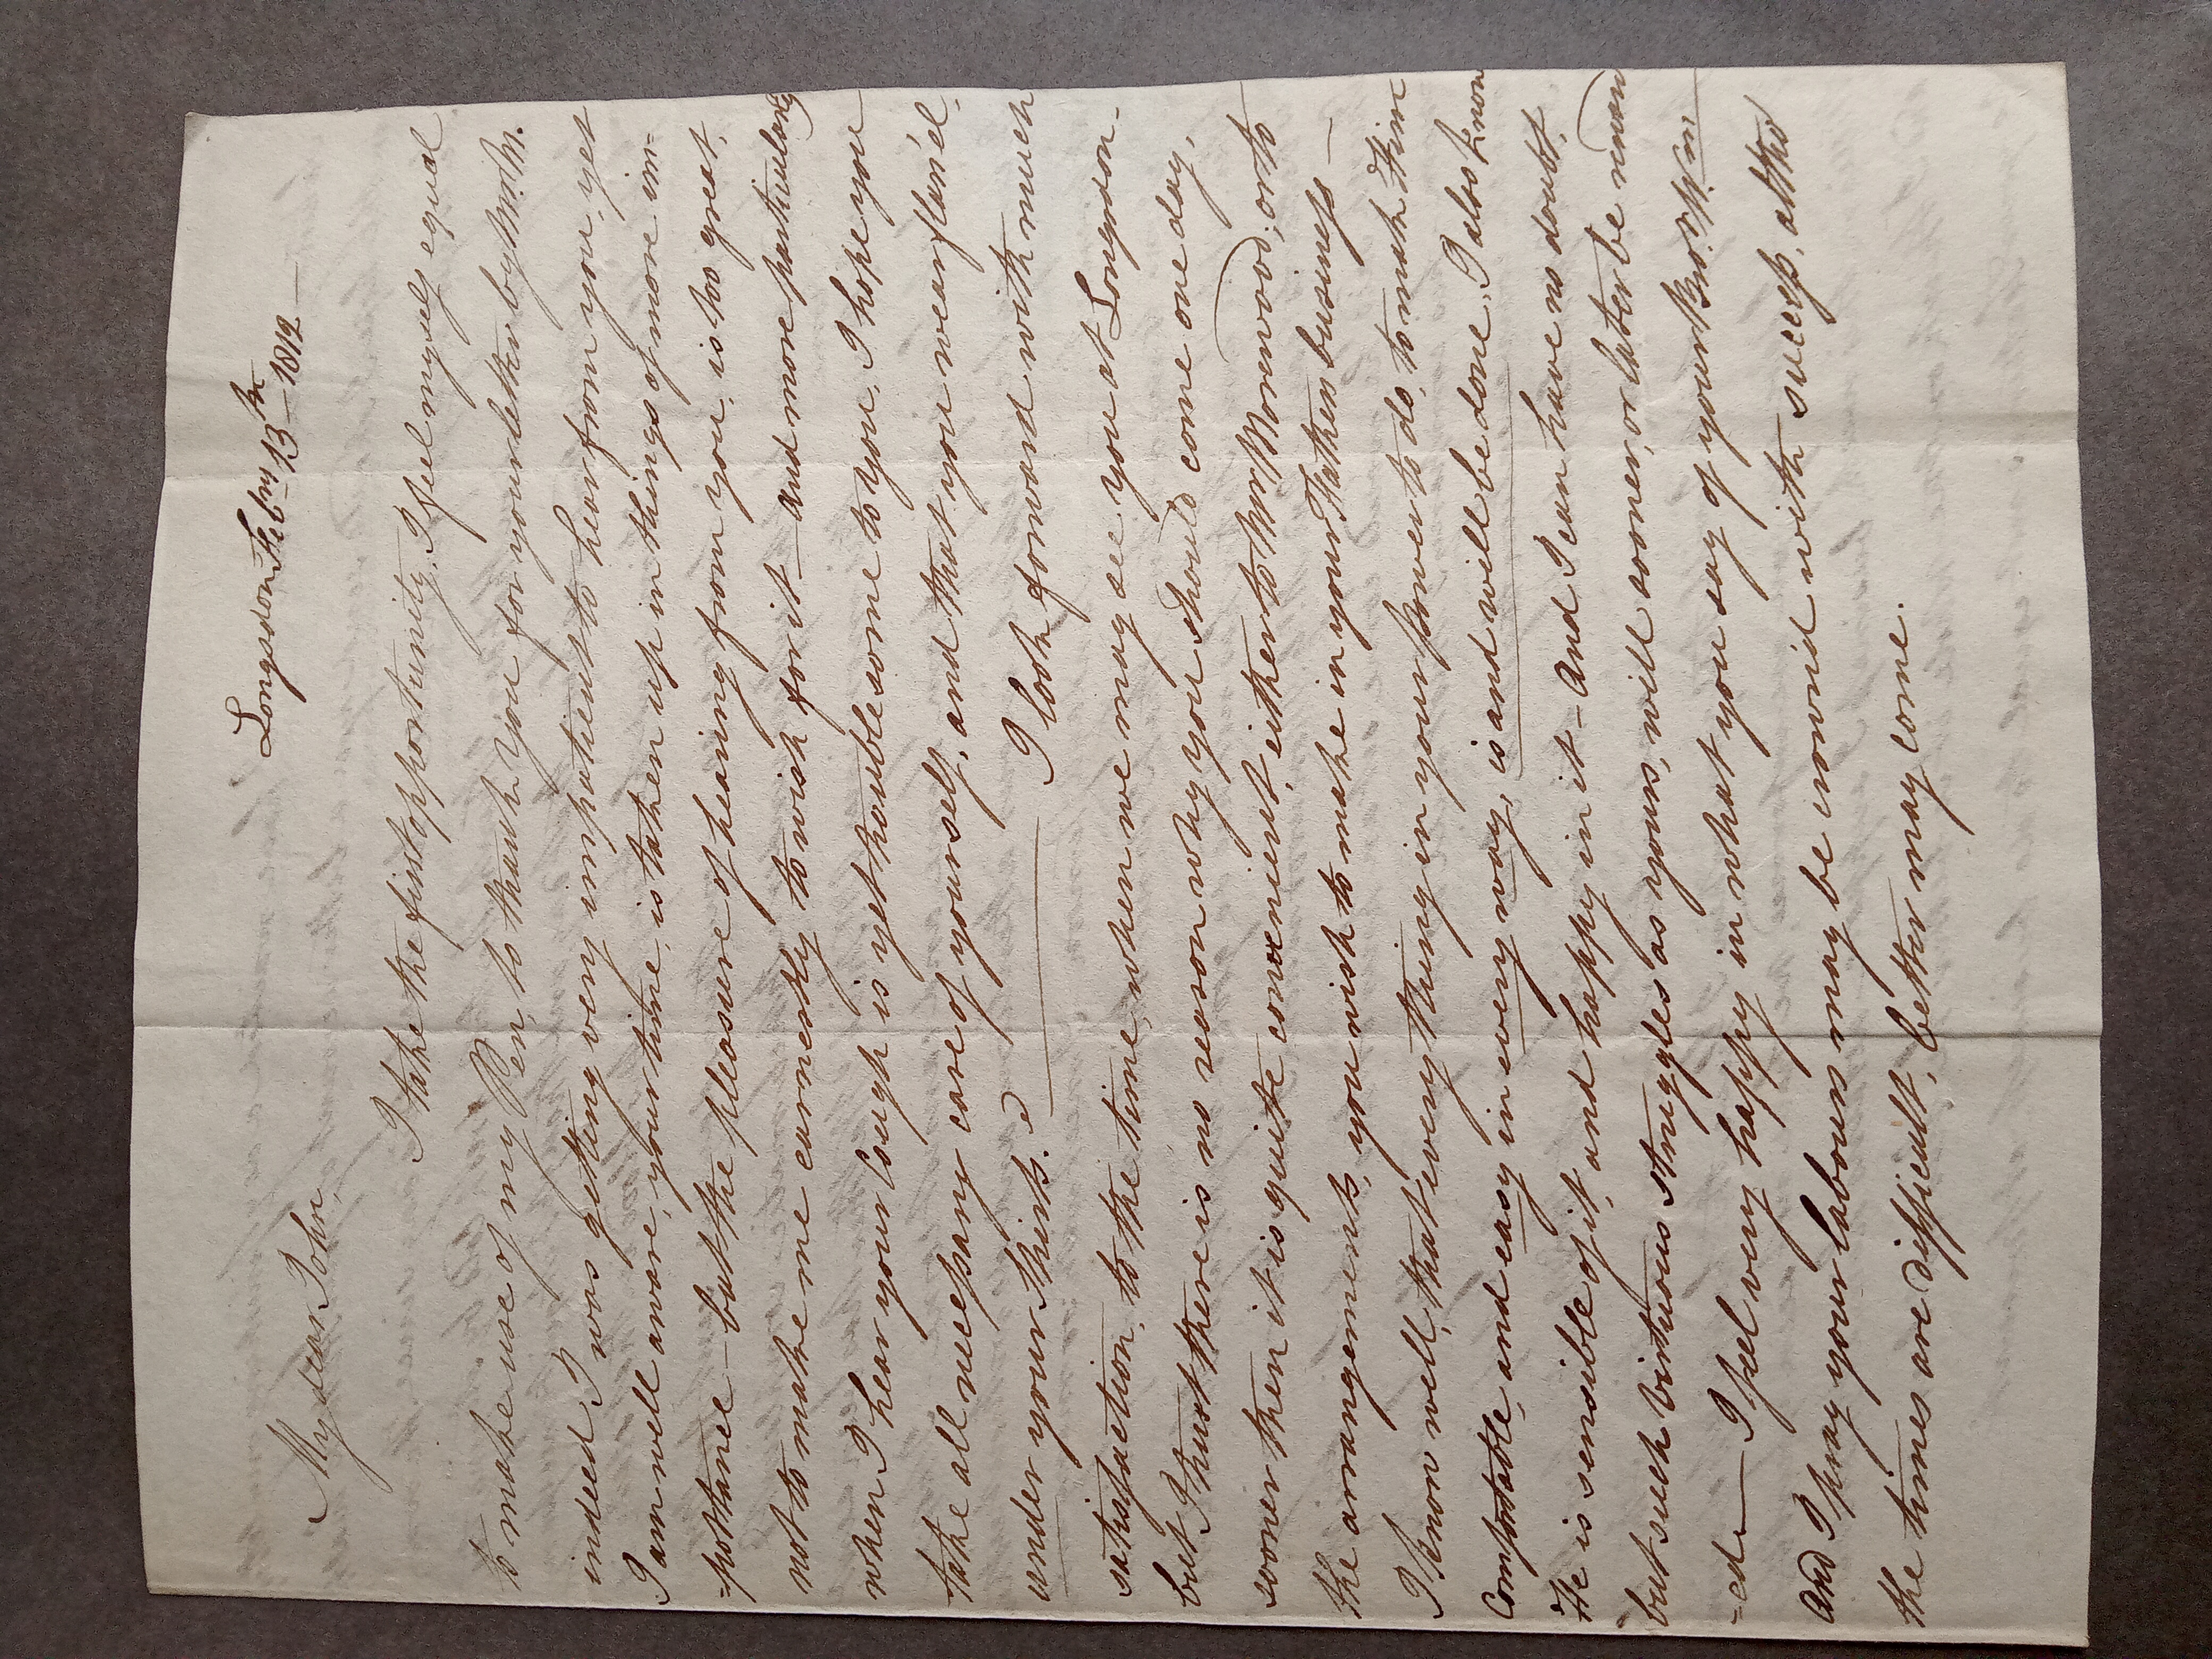 Longsdon Febry 13th – 1812 –
My dear John,
I take the first opportunity, I feel myself equal
to make use of my Pen, to thank you for your letter by Mr. M.
indeed I was getting very impatient to hear from you, yet
I am well aware, your time, is taken up in things of more im-
-portance – but the pleasure of hearing from you, is too great,
not to make me earnestly to wish for it – and more particularly
when I hear your Cough is yet troublesome to you, I hope you
take all necessary care of yourself, and that you wear flan'el
under your Shirts. I look forward with much
satisfaction, to the time, when we may see you at Longsdon –
but I trust there is no reason why you should come one day,
sooner then it is quite convenient, either to Mr. Morewood, or to
the arrangements, you wish to make in your Fathers business –
I know well, that every thing in your power to do, to make Him
Comfortable, and easy in every way, is and will be done, I also know
He is sensible of it, and happy in it – And I can have no doubt,
but such virtuous struggles as yours, will sooner, or later be reward
-ed – I feel very happy in what you say of your Bro. Wm:
And I pray your labours may be crown'd with success, altho'
the times are difficult, better may come.